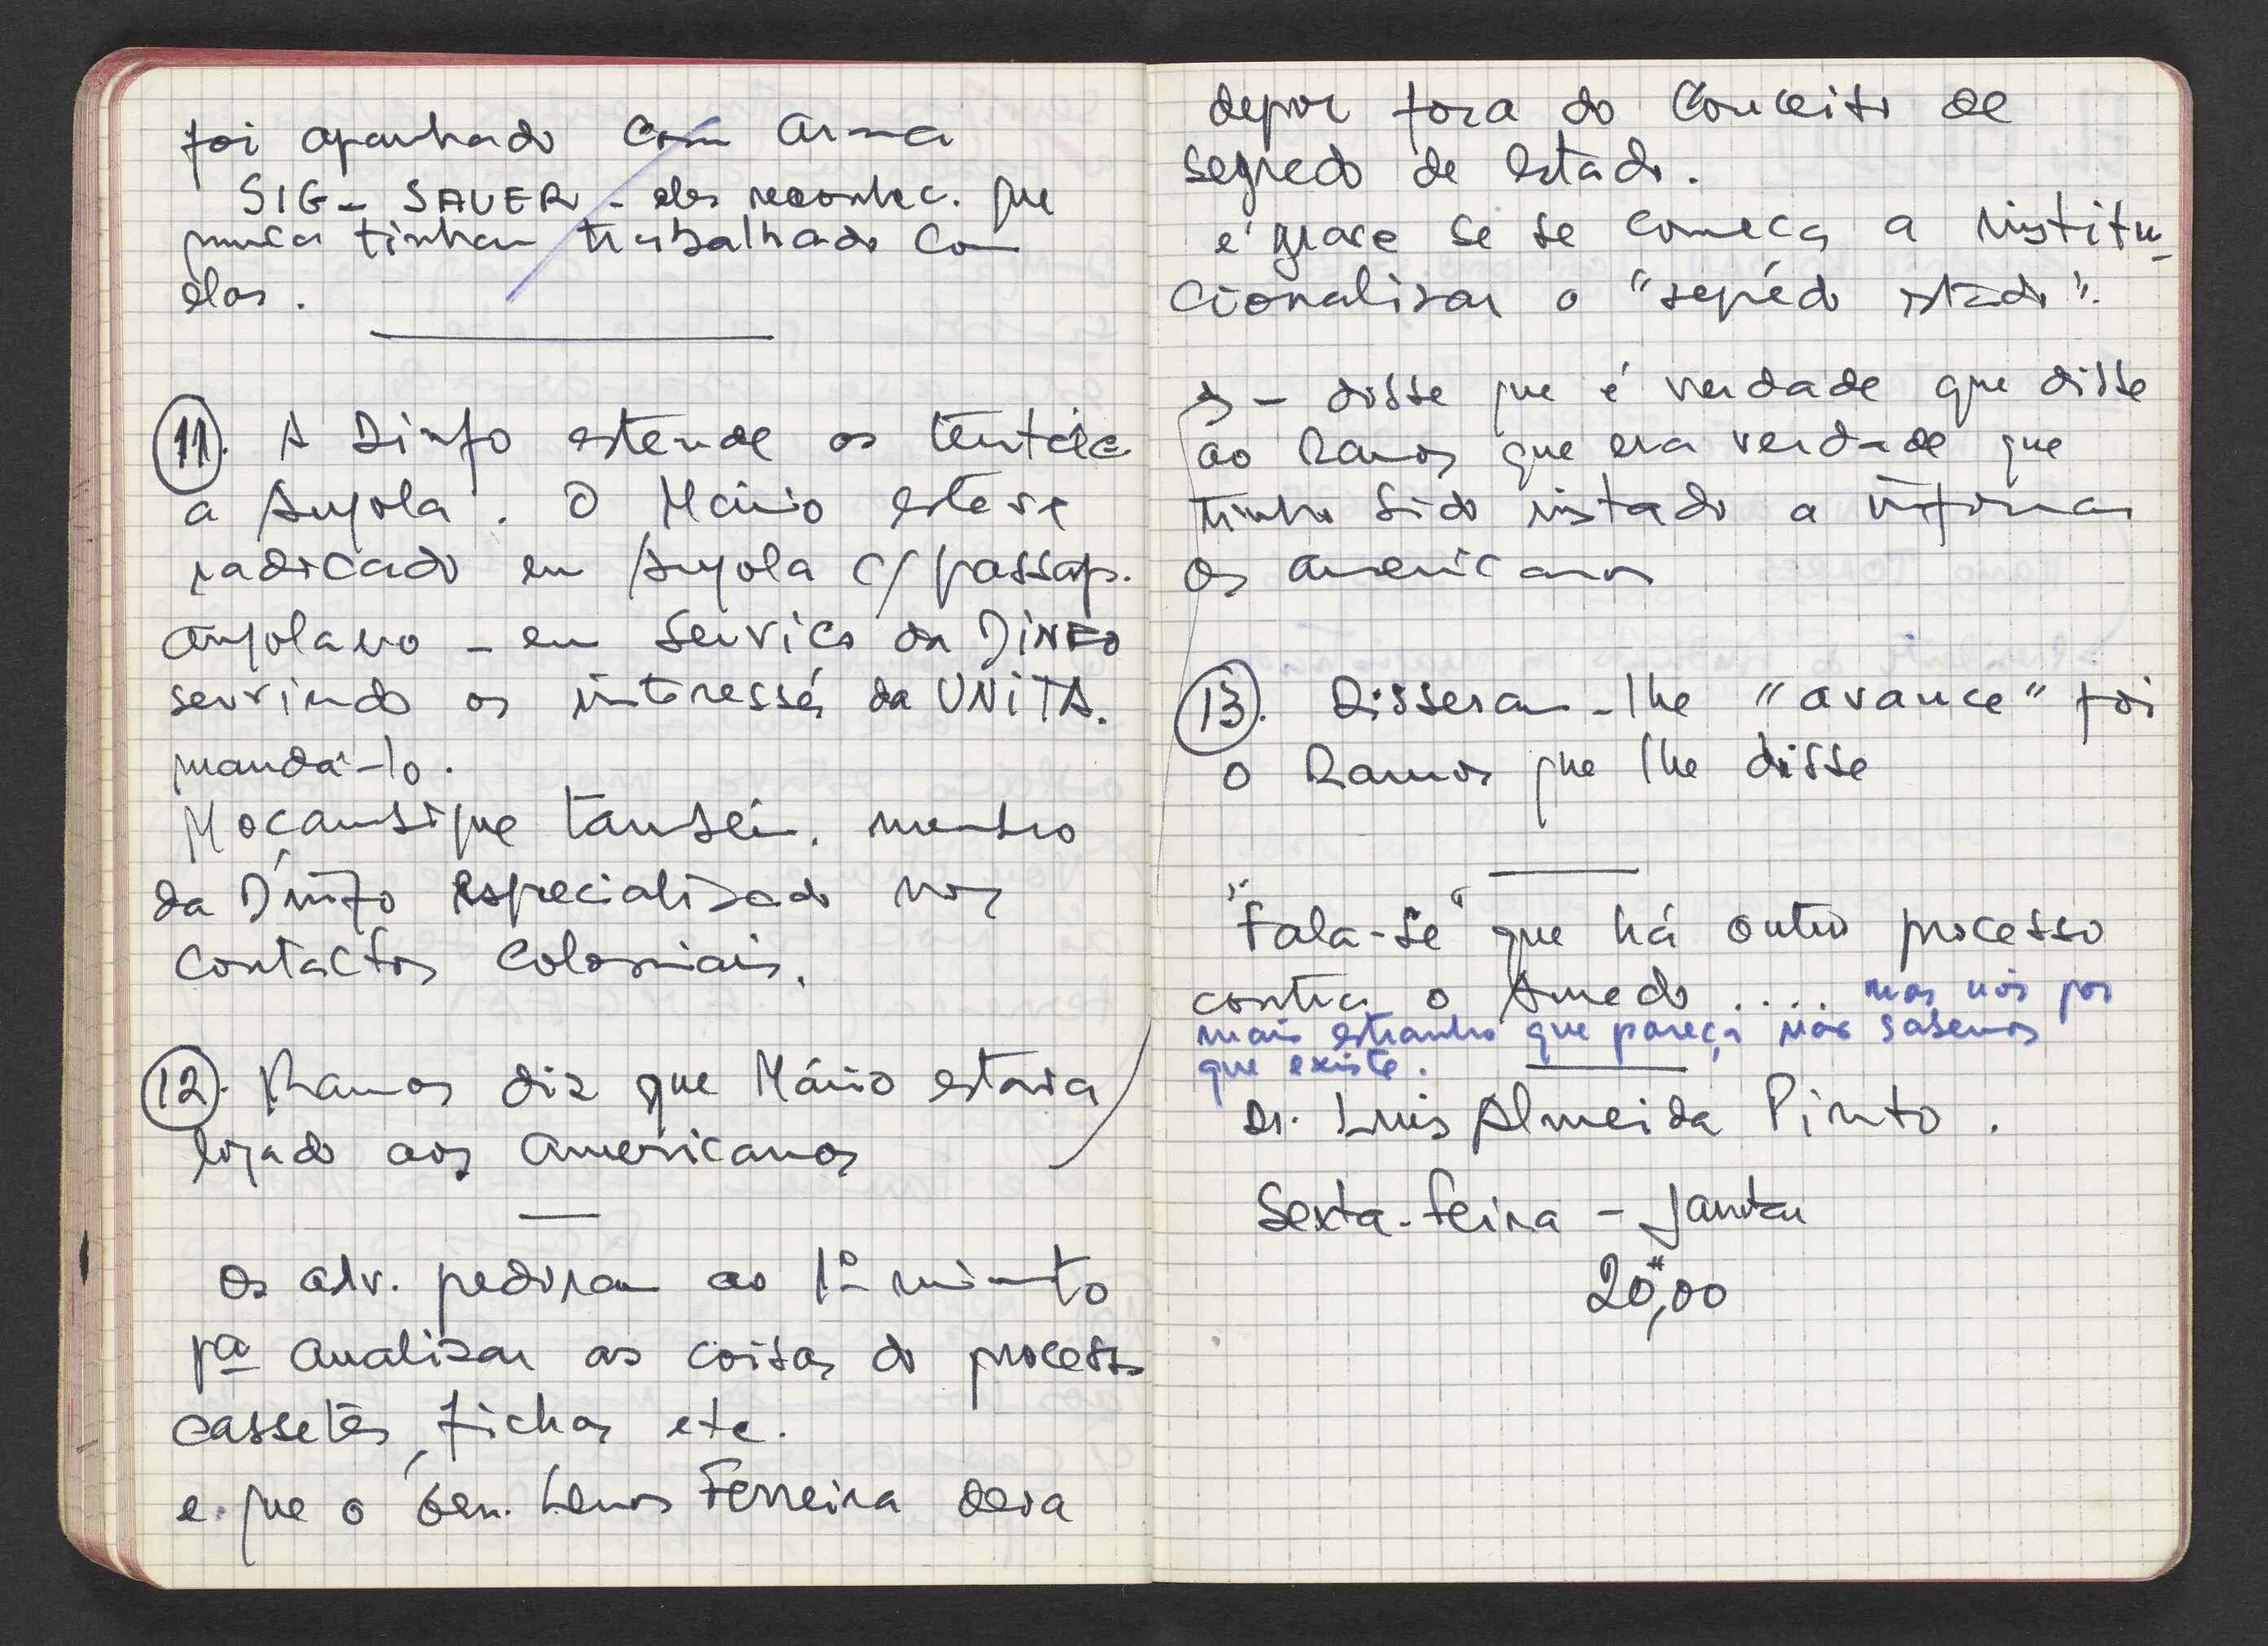 foi apanhado com arma
SIG-SAUER - eles reconhec. que
nunca tinham trabalhado com
elas.
11. A Dinfo estende os tentác.
a Angola. O Mário esteve
radicado em Angola c/ passap.
angolano - em serviço da DINFO
servindo os interesses da UNITA.
mandá-lo.
Moçambique também. membro
da Dinfo especializado nos
contactos coloniais.
12. Ramos diz que Mário estava
ligado aos americanos
Os adv. pediram ao 1º
pª analisar as coisas do processo
cassetes, fichas etc.
e que o Gen. Lemos Ferreira
depor fora do conceito de
segredo de estado.
é grave se se começa a institu-
cionalizar o "segrédo estado".
- disse que é verdade que disse
ao Ramos que era verdade que
tinha sido instado a informar
os americanos
13. Disseram-lhe "avance" foi
o Ramos que lhe disse
"Fala-se" que há outro processo
contra o .... mas nós por
mais estranho que pareça não sabemos
que existe.
Dr. Luis Almeida Pinto.
Sexta-feira - Jantar
20,00